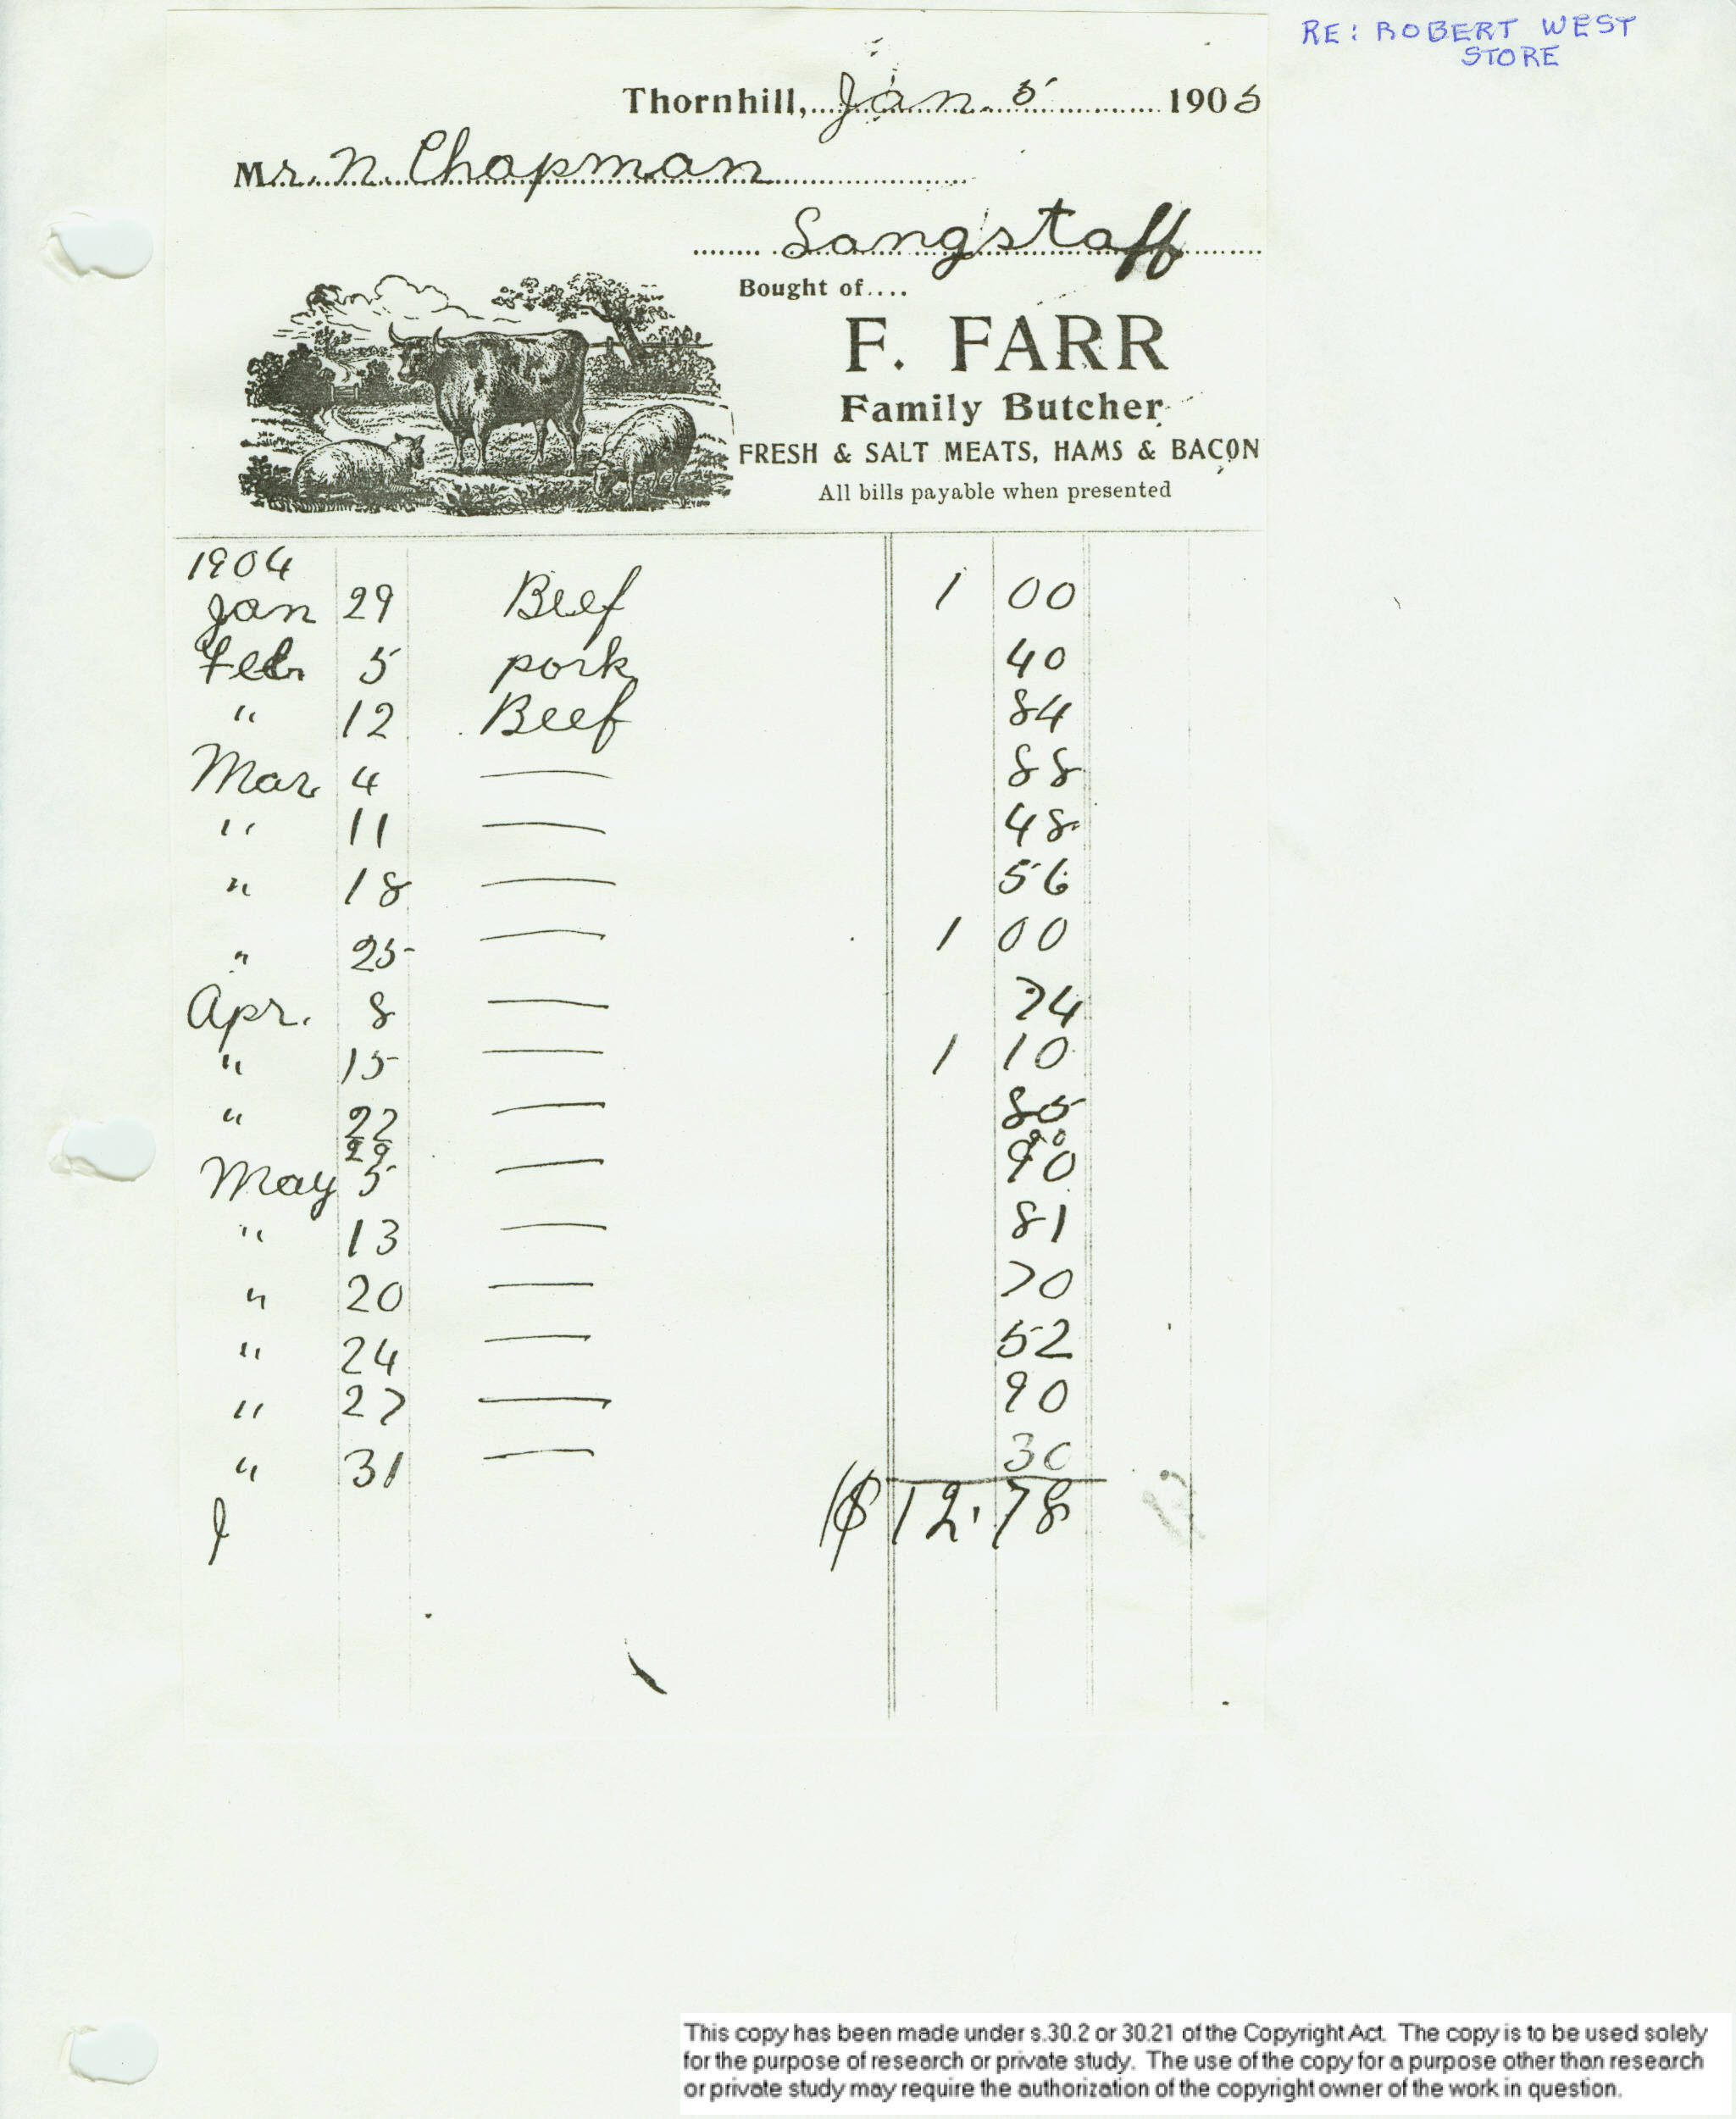 RE: ROBERT WEST
STORE
Thornhill, Jan. 5 1905
Mr. N. Chapman
Langstaff
Bought of....
F. FARR
Family Butcher
FRESH & SALT MEATS, HAMS & BACON
All bills payable when presented
1904
Jan 29 Beef 1 00
Feb. 5 pork 40
" 12 Beef 84
Mar. 4 — 88
" 11 — 48
" 18 — 56
" 25 — 1 00
Apr. 8 — 74
" 15 — 1 10
" 22 — 85
29 90
May 5 — 90
" 13 — 81
" 20 — 70
" 24 — 52
" 27 — 90
" 31 — 30
$12.78
This copy has been made under s.30.2 or 30.21 of the Copyright Act. The copy is to be used solely
for the purpose of research or private study. The use of the copy for a purpose other than research
or private study may require the authorization of the copyright owner of the work in question.